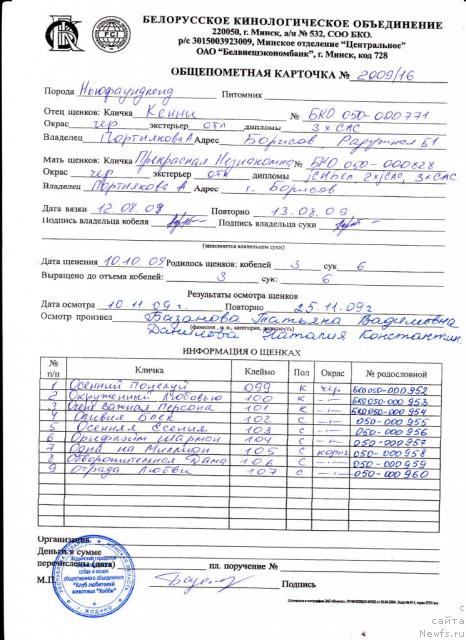 БЕЛОРУССКОЕ КИНОЛОГИЧЕСКОЕ ОБЪЕДИНЕНИЕ
220050, г. Минск, а/я № 532, СОО БКО.
р/с 3015003923009, Минское отделение "Центральное"
ОАО "Белвнешэкономбанк", г. Минск, код 728
FCI
ОБЩЕПОМЕТНАЯ КАРТОЧКА № 2009/16
Порода Ньюфаундленд Питомник
Отец щенков: Кличка Кенни № БКО 050-000771
Окрас чер экстерьер отл дипломы 3хСАС
Владелец Портнякова А Адрес Борисов Радужная 51
Мать щенков: Кличка Прекрасная Незнакомка № БКО 050-000828
Окрас чер экстерьер отл дипломы 3хСАС
Владелец Портнякова А Адрес г. Борисов
Дата вязки 12.08.09 Повторно 13.08.09
Подпись владельца кобеля Подпись владельца суки
(заполняется владельцем суки)
Дата щенения 10.10.09 Родилось щенков: кобелей 3 сук 6
Выращено до отъема кобелей: 3 сук: 6
Результаты осмотра щенков
Дата осмотра 10.11.09г. Повторно 25.11.09г
Осмотр произвел Базанова Татьяна Вадимовна
Данилова Наталия Константин.
(фамилия, и., о., категория, должность)
ИНФОРМАЦИЯ О ЩЕНКАХ
№ п/п Кличка Клеймо Пол Окрас № родословной
1 Осенний Поцелуй 099 К чер БКО050-000952
2 Окруженный Любовью 100 К -"- БКО050-000953
3 Очень Важная Персона 101 К -"- БКО050-000954
4 Оливия Блек 102 С -"- 050-000955
5 Осенняя Есения 103 С -"- 050-000956
6 Орифлэйм Шарман 104 С -"- 050-000957
7 Одна на Миллион 105 С корич 050-000958
8 Обворожительная Дама 106 С -"- 050-000959
9 Отрада Любви 107 С -"- 050-000960
Организация
Деньги в сумме
перечислены (дата) пл. поручение №
М.П. Подпись
собак и кошек
общественного объединения
"Клуб любителей
животных "Хобби"
г. ЖОДИНО
с
сайта
Newfs.ru